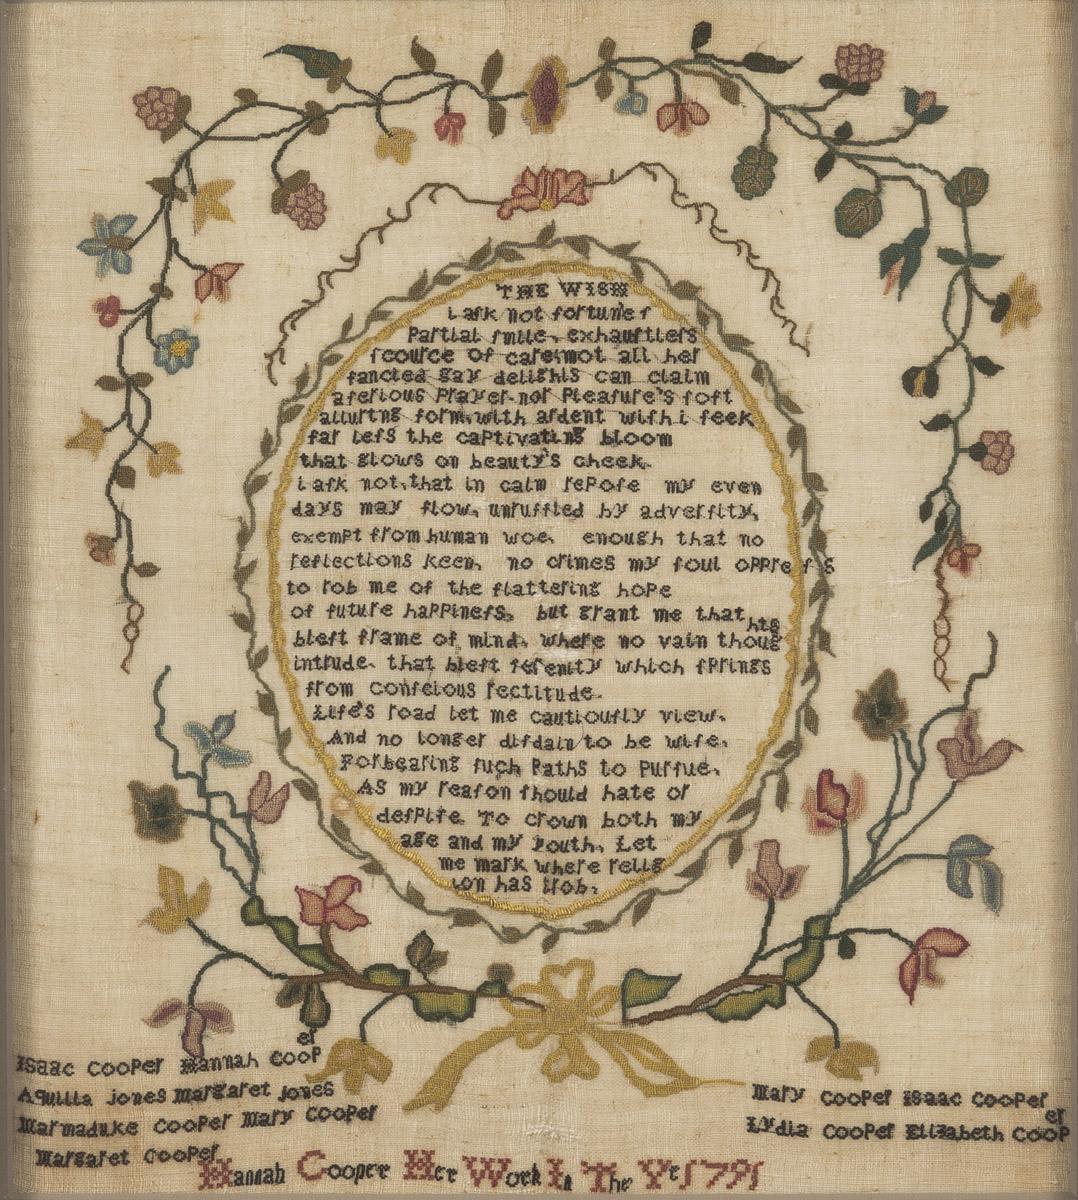 THE WISH
i ask not fortune's
Partial smile, exhaustless
source of cares: not all her
fancied gay delights can claim
a serious Prayer. nor Pleasure's soft
alluring form, with ardent wish i seek
far less the captivating bloom
that glows on beauty's cheek.
i ask not, that in calm repose my even
days may flow, unruffled by adversity,
exempt from human woe, enough that no
reflections keen, no crimes my soul oppress
to rob me of the flattering hope
of future happiness, but grant me that
blest frame of mind, where no vain thoughts
intrude, that blest serenity which springs
from conscious rectitude.
Life's road let me cautiously view,
And no longer disdain to be wise,
Forbearing such Paths to Pursue,
As my reason should hate or
despise. To crown both my
age and my youth, Let
me mark where relig
ion has trob,
Isaac Cooper Hannah Cooper
Aquilla jones Margaret jones
Marmaduke Cooper Mary Cooper
Margaret Cooper
Mary Cooper Isaac Cooper
Lydia Cooper Elizabeth Cooper
Hannah Cooper Her Work In The Yr 1791